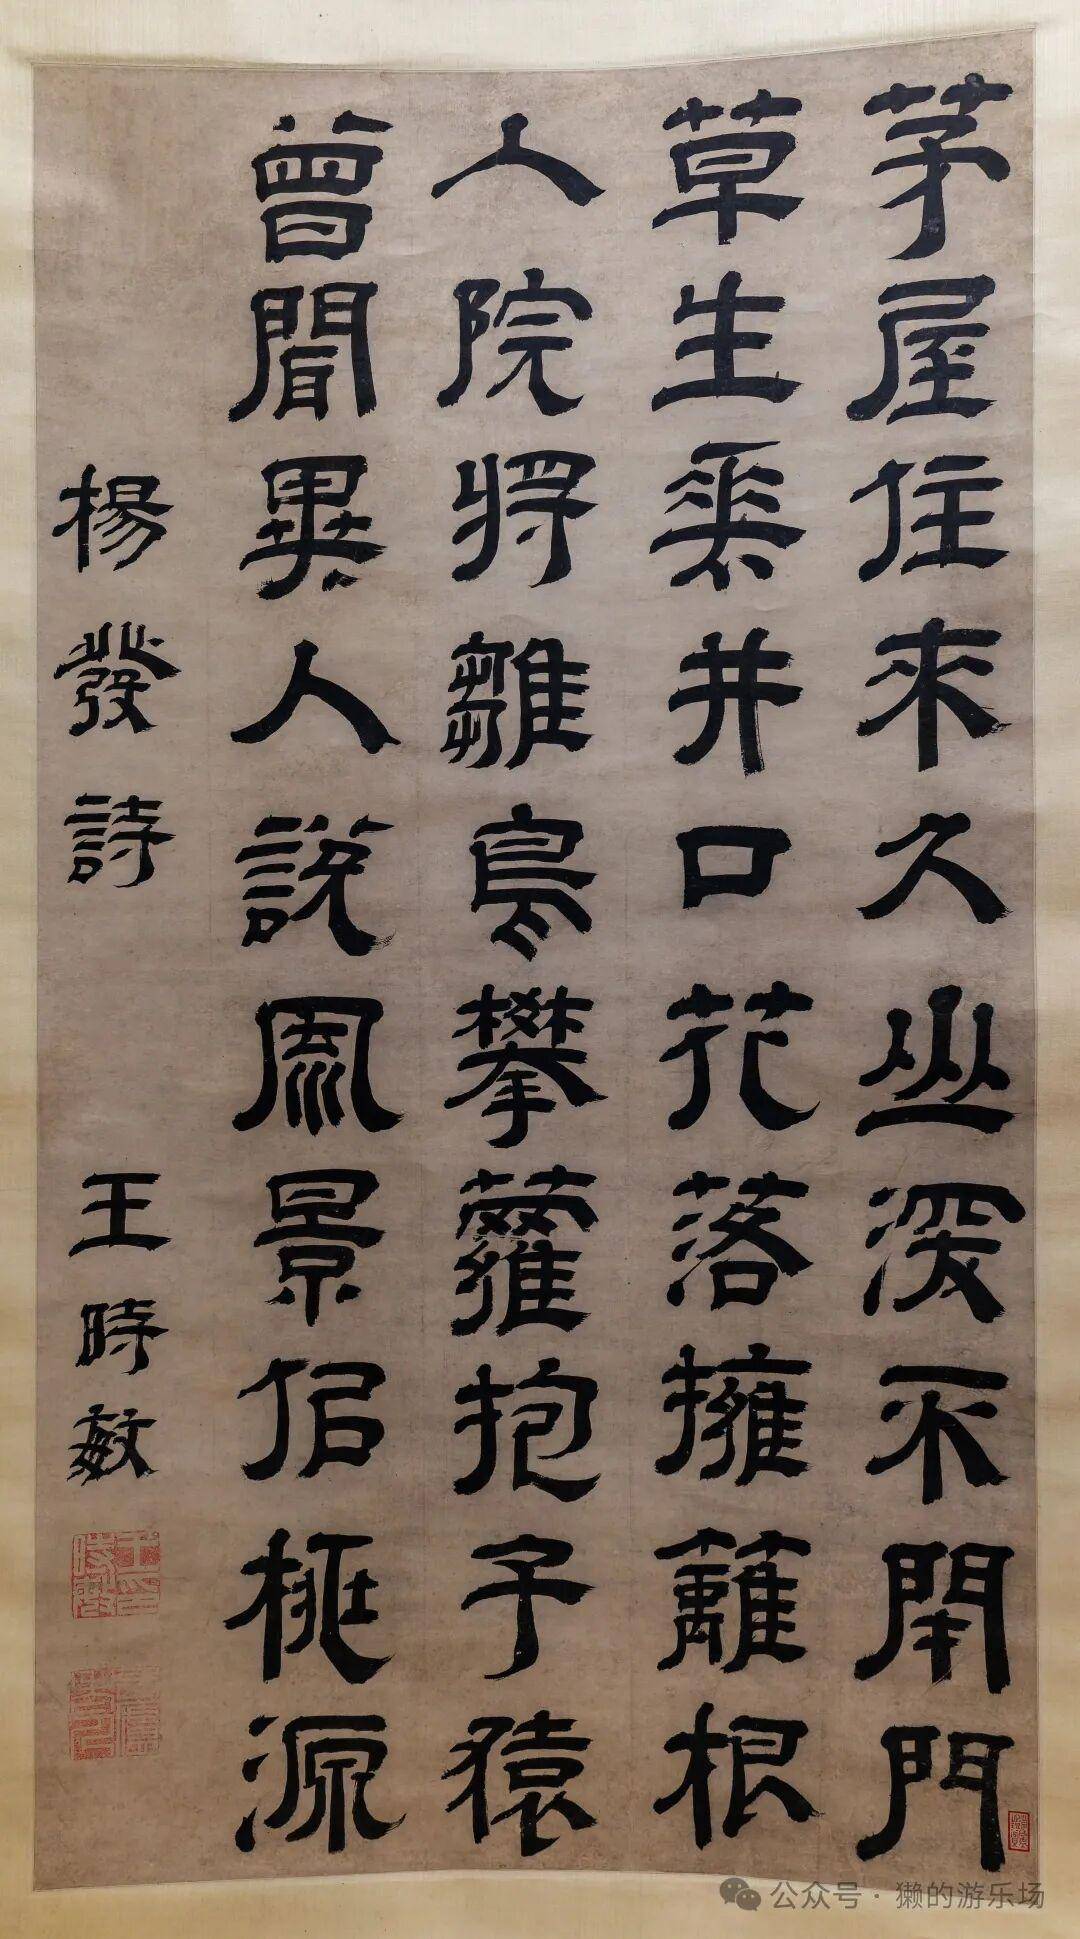 茅屋住來久山深不閇門
草生垂井口花落擁籬根
入院將雛鳥攀蘿抱子猿
曾聞異人說風景佀桃源
楊發詩 王時敏
公众号 · 獭的游乐场